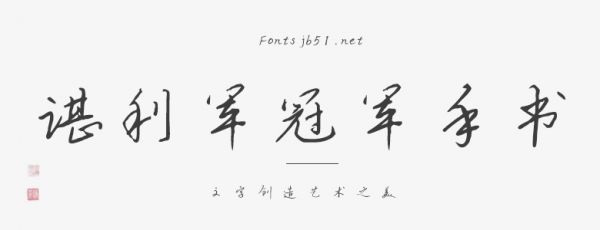 Fonts jb51.net
谌利军冠军手书
文字创造艺术之美